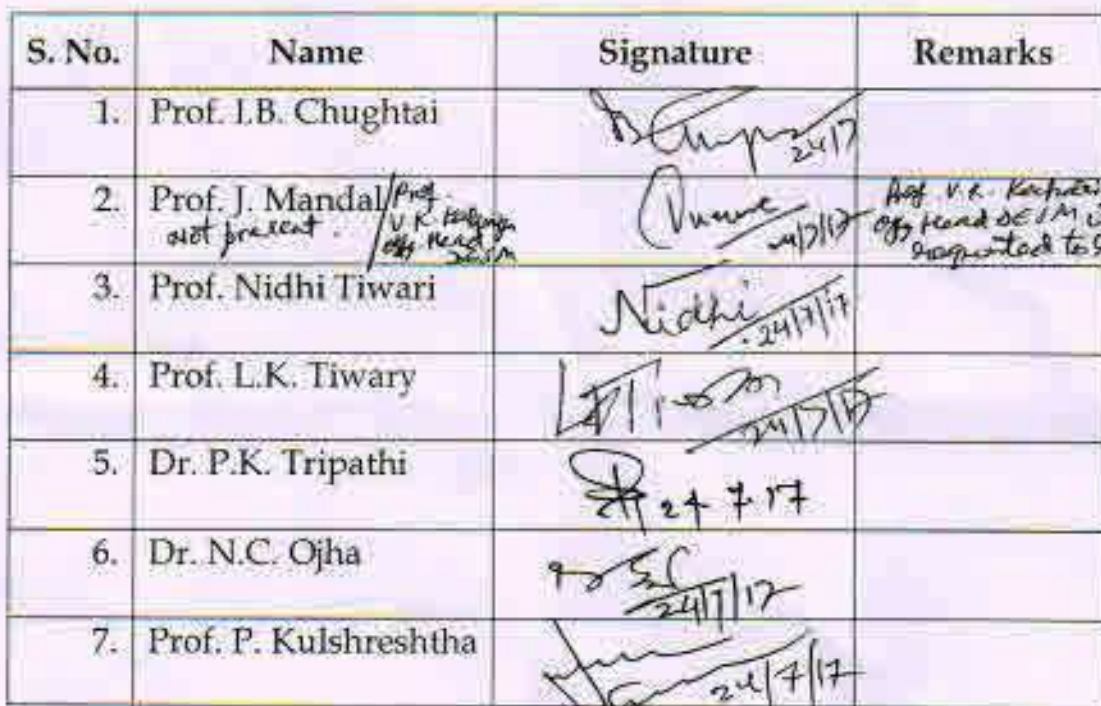 S. No. Name Signature Remarks
1. Prof. I.B. Chughtai 24/7
2. Prof. J. Mandal / Prof. V.K. Offg Head DESM
not present. 24/7/17 Prof. V.K. Offg Head DESM is requested to
3. Prof. Nidhi Tiwari Nidhi 24/7/17
4. Prof. L.K. Tiwary 24/7/17
5. Dr. P.K. Tripathi 24.7.17
6. Dr. N.C. Ojha 24/7/17
7. Prof. P. Kulshreshtha 24/7/17